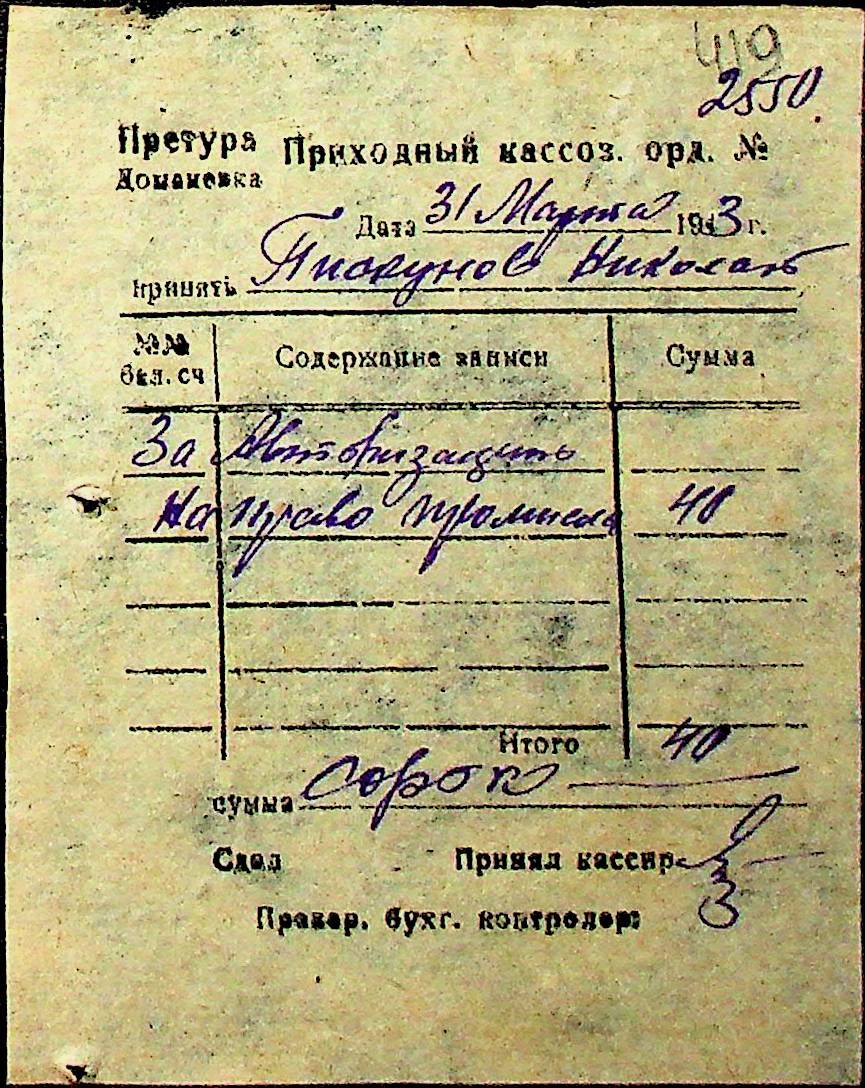 419
2550
Претура Приходный кассов. орд. №
Домановка
Дата 31 Марта 1943 г.
принять Пискунов Николай
№№ Содержание записи Сумма
бал. сч
За Авторизацию
На право промысла 40
Итого 40
сумма Сорок —
Сдал Принял кассир
Правер. бухг. контролер: